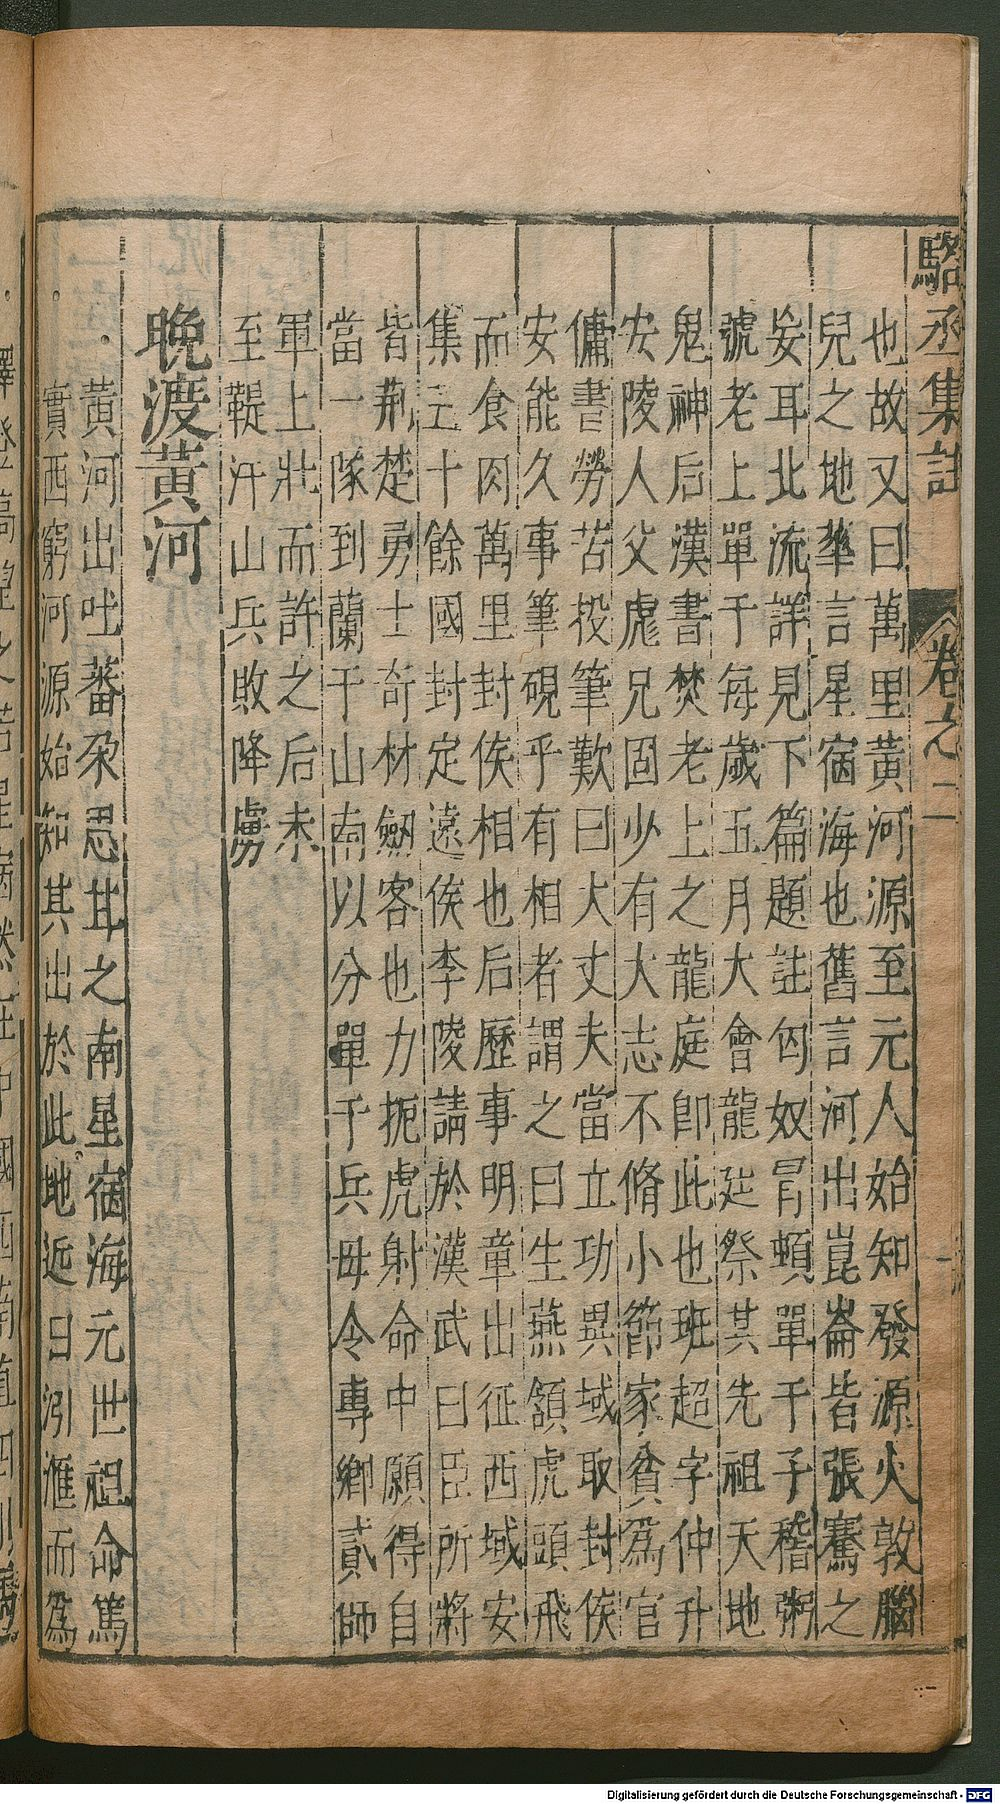 駱丞集註 卷之二
也故又曰萬里黃河源至元人始知發源火敦腦
兒之地華言星宿海也舊言河出崑崙皆張騫之
妄耳北流詳見下篇題註匈奴冐頓單于子稽粥
號老上單于每歲五月大會龍廷祭其先祖天地
鬼神后漢書焚老上之龍庭卽此也班超字仲升
安陵人父彪兄固少有大志不脩小節家貧為官
傭書勞苦投筆歎曰大丈夫當立功異域取封侯
安能久事筆硯乎有相者謂之曰生燕頷虎頭飛
而食肉萬里封侯相也后歷事明章出征西域安
集五十餘國封定遠侯李陵請於漢武曰臣所將
皆荆楚勇士奇材劒客也力扼虎射命中願得自
當一隊到蘭干山南以分單于兵毋令專鄉貳師
軍上壯而許之后未
至鞮汗山兵敗降虜
晚渡黃河
黃河出吐蕃朶思甘之南星宿海元世祖命篤
實西窮河源始知其出於此地近曰汾滙而為